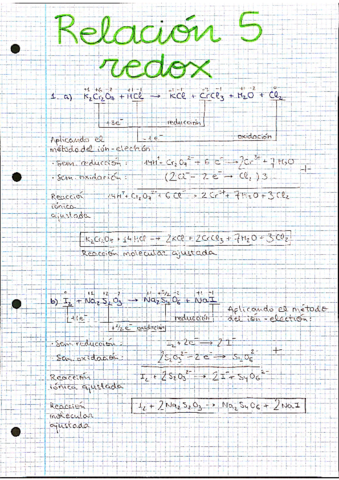 Relación 5
redox
1. a) K₂Cr₂O₇ + HCl → KCl + CrCl₃ + H₂O + Cl₂
+3e⁻ reducción
-1e⁻ oxidación
Aplicando el
método del ion-electrón
· Sem. reducción: 14H⁺ + Cr₂O₇²⁻ + 6e⁻ → 2Cr³⁺ + 7H₂O
· Sem. oxidación: (2Cl⁻ - 2e⁻ → Cl₂) 3
Reacción
iónica
ajustada
14H⁺ + Cr₂O₇²⁻ + 6Cl⁻ → 2Cr³⁺ + 7H₂O + 3Cl₂
K₂Cr₂O₇ + 14HCl → 2KCl + 2CrCl₃ + 7H₂O + 3Cl₂
Reacción molecular ajustada
b) I₂ + Na₂S₂O₃ → Na₂S₄O₆ + NaI
+1e⁻ reducción
oxidación
Aplicando el método
del ion-electrón:
· Sem. reducción: I₂ + 2e⁻ → 2I⁻
· Sem. oxidación: 2S₂O₃²⁻ - 2e⁻ → S₄O₆²⁻
Reacción
iónica ajustada
I₂ + 2S₂O₃²⁻ → 2I⁻ + S₄O₆²⁻
Reacción
molecular
ajustada
I₂ + 2Na₂S₂O₃ → Na₂S₄O₆ + 2NaI